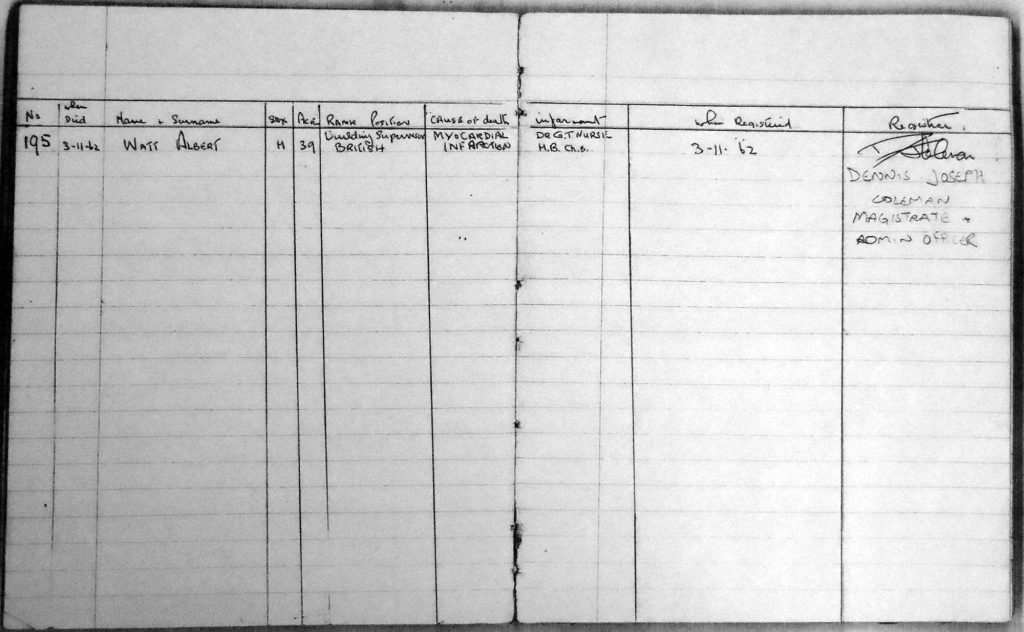 No when Died Name & Surname Sex Age Rank Position Cause of death informant when Registered Registrar.
195 3-11-62 Watt Albert M 39 Building Supervisor British MYOCARDIAL INFARCTION DR G.T NURSE M.B. Ch.B. 3-11-62
DENNIS JOSEPH
COLEMAN
MAGISTRATE &
ADMIN OFFICER